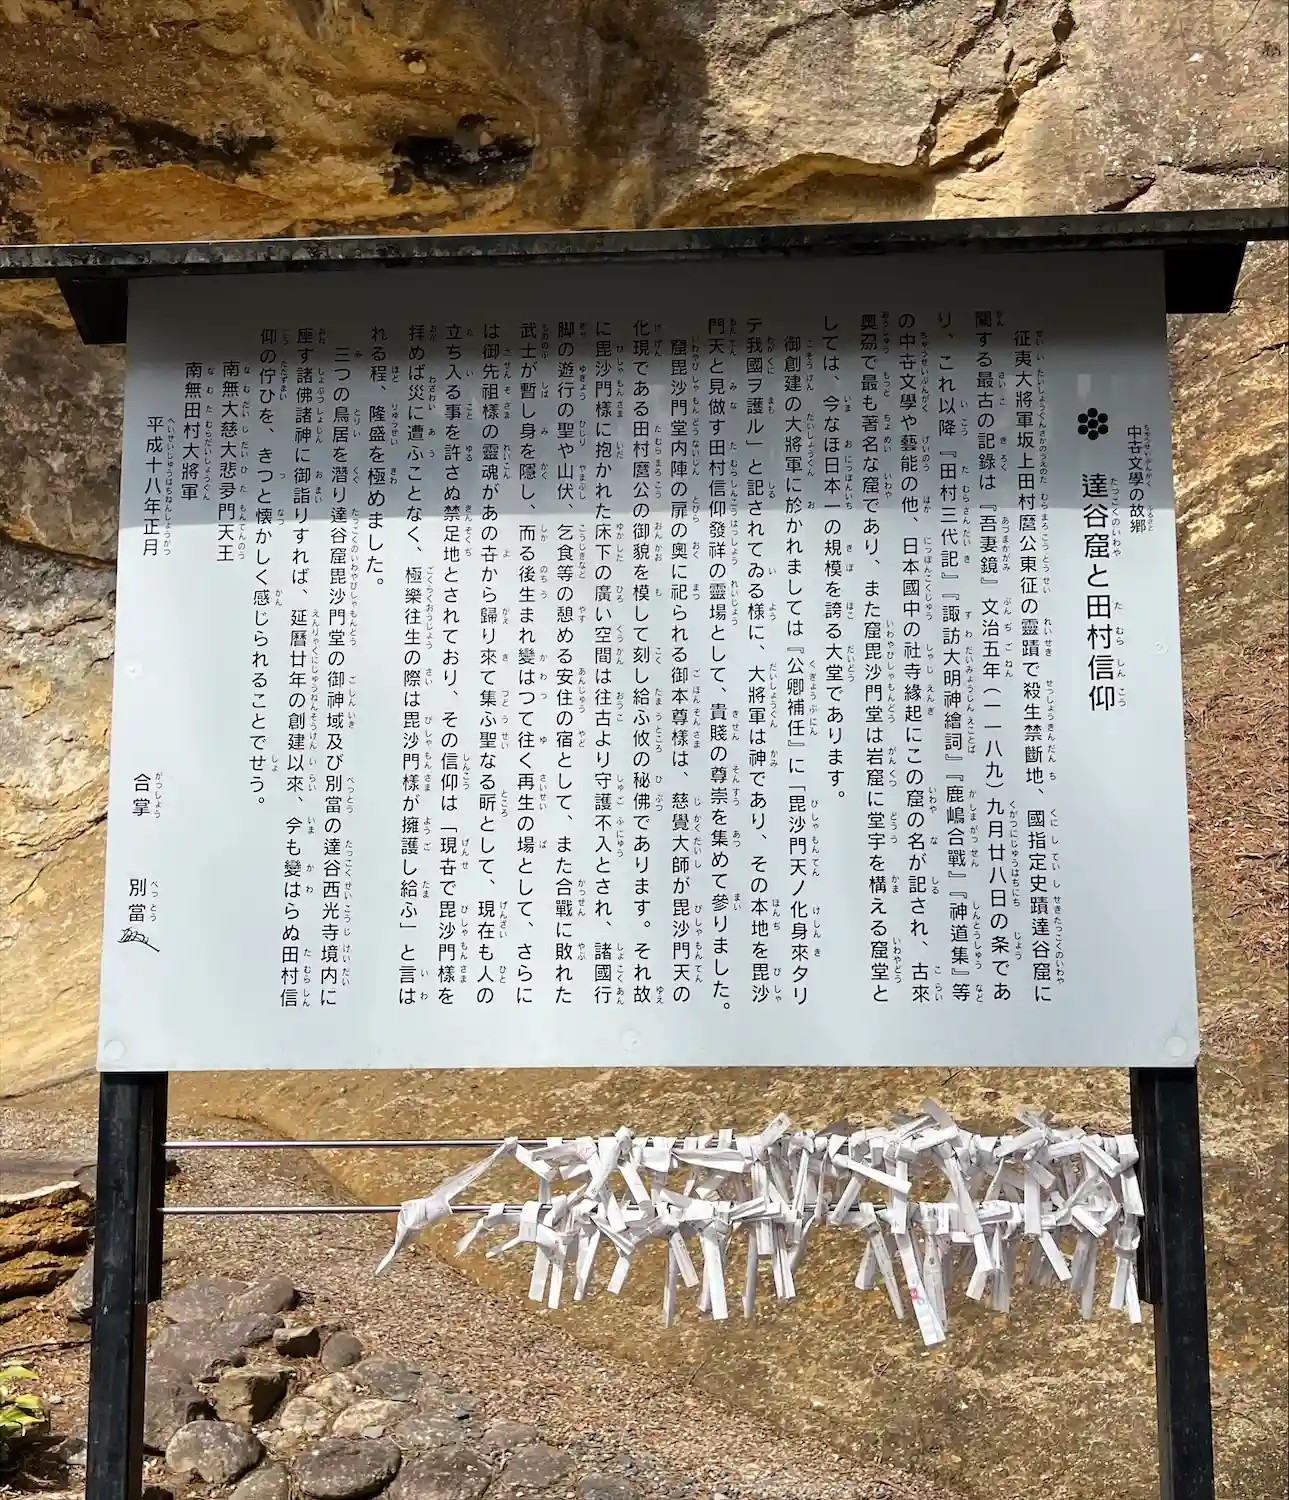 中世文學の故郷
達谷窟と田村信仰
征夷大將軍坂上田村麿公東征の靈蹟で殺生禁斷地、國指定史蹟達谷窟に
關する最古の記錄は『吾妻鏡』文治五年(一一八九)九月廿八日の条であ
り、これ以降『田村三代記』『諏訪大明神繪詞』『鹿嶋合戰』『神道集』等
の中世文學や藝能の他、日本國中の社寺緣起にこの窟の名が記され、古來
奧刕で最も著名な窟であり、また窟毘沙門堂は岩窟に堂宇を構える窟堂と
しては、今なほ日本一の規模を誇る大堂であります。
御創建の大將軍に於かれましては『公卿補任』に「毘沙門天ノ化身來タリ
テ我國ヲ護ル」と記されてゐる様に、大將軍は神であり、その本地を毘沙
門天と見做す田村信仰發祥の靈場として、貴賤の尊崇を集めて參りました。
窟毘沙門堂内陣の扉の奧に祀られる御本尊樣は、慈覺大師が毘沙門天の
化現である田村麿公の御貌を模して刻し給ふ攸の秘佛であります。それ故
に毘沙門樣に抱かれた床下の廣い空間は往古より守護不入とされ、諸國行
脚の遊行の聖や山伏、乞食等の憩める安住の宿として、また合戰に敗れた
武士が暫し身を隱し、而る後生まれ變はつて往く再生の場として、さらに
は御先祖樣の靈魂があの世から歸り來て集ふ聖なる所として、現在も人の
立ち入る事を許さぬ禁足地とされており、その信仰は「現世で毘沙門樣を
拝めば災に遭ふことなく、極樂往生の際は毘沙門樣が擁護し給ふ」と言は
れる程、隆盛を極めました。
三つの鳥居を潛り達谷窟毘沙門堂の御神域及び別當の達谷西光寺境内に
座す諸佛諸神に御詣りすれば、延曆廿年の創建以來、今も變はらぬ田村信
仰の佇ひを、きつと懐かしく感じられることでせう。
南無大慈大悲多門天王
南無田村大將軍
平成十八年正月
合掌
別當